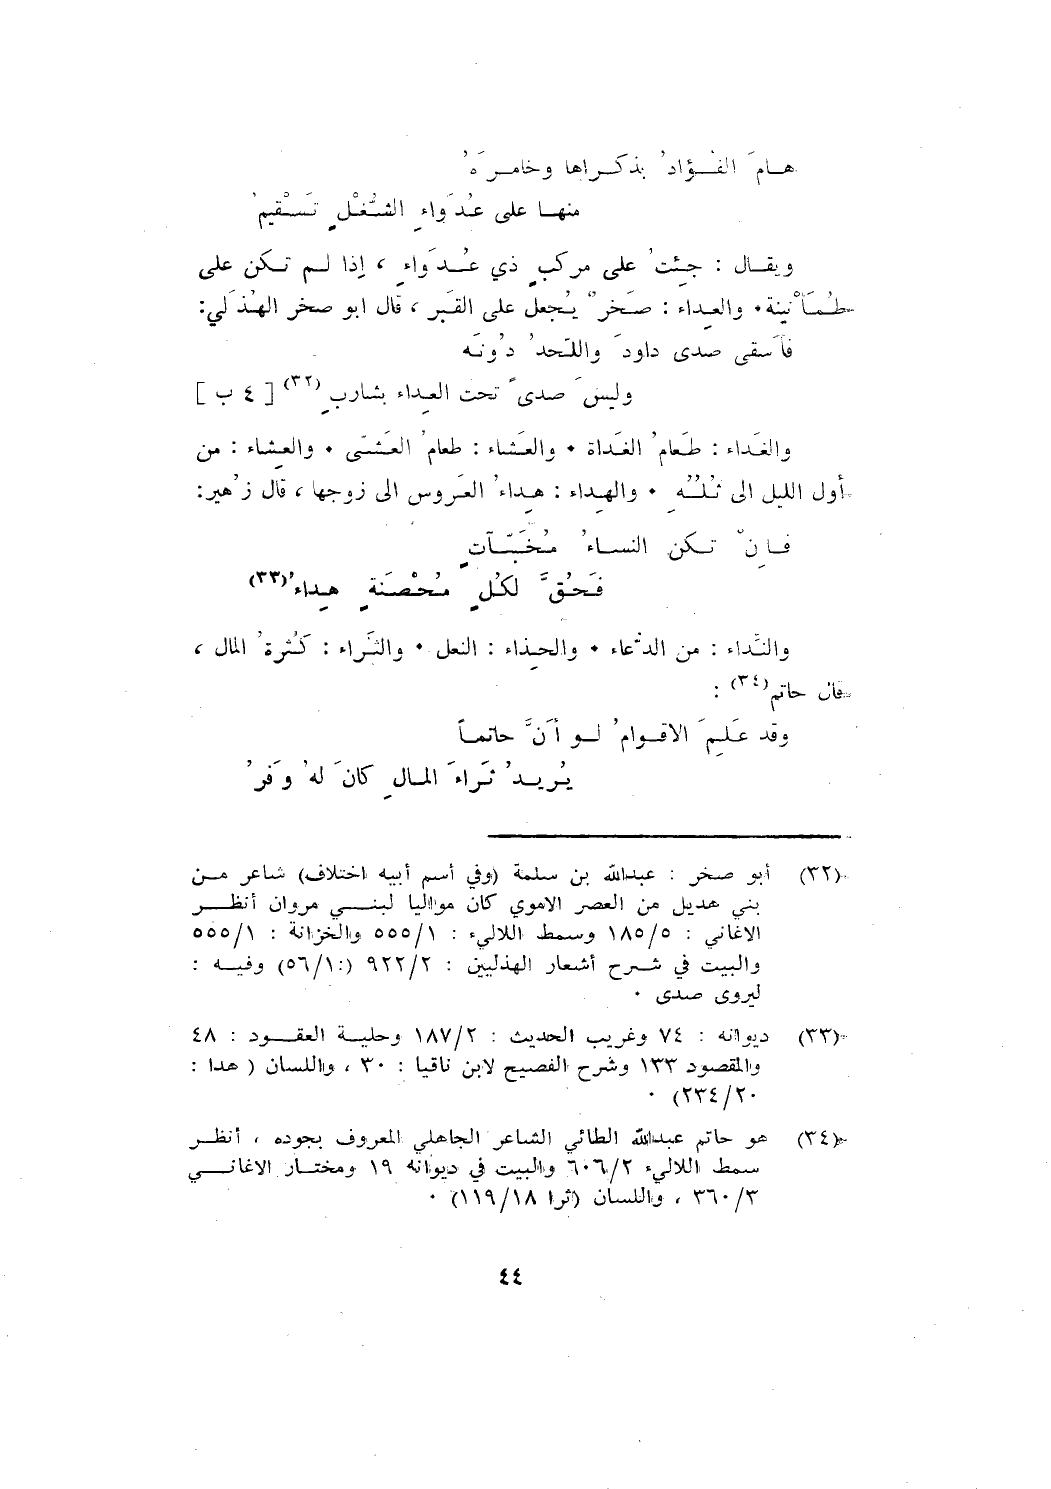 هامَ الفُؤادُ بذكراها وخامرَهُ
منها على عُدَواءِ الشُّغْلِ تَسْقيمُ
ويقال : جئتُ على مركبٍ ذي عُدَواءِ ، إذا لم تكن على
طُمَأْنينة٠ والعِداء : صَخرٌ يُجعل على القَبر ، قال ابو صخر الهُذَلي:
فأَسقى صدى داودَ واللّحدُ دُونَه
وليسَ صدىً تحت العِداء بشاربِ(٣٢) [ ٤ ب ]
والغَداء : طَعامُ الغَداة ٠ والعَشاء : طعامُ العَشّى ٠ والعِشاء : من
أول الليل الى ثُلُثُهِ ٠ والهِداء : هِداءُ العَروس الى زوجها ، قال زُهير:
فـاِنْ تـكن النساءُ مُخَبّـآتٍ
فَحُقَّ لكُلِ مُحْصَنَةٍ هِداءُ(٣٣)
والنّداء : من الدّعاء ٠ والحِذاء : النعل ٠ والثَراء : كَثرةُ المال ،
قال حاتم(٣٤) :
وقد عَلِمَ الاقوامُ لو أنَّ حاتماً
يُريدُ ثَراءَ المالِ كانَ لهُ وَفرُ
(٣٢) أبو صخر : عبدالله بن سلمة (وفي أسم أبيه اختلاف) شاعر من
بني هديل من العصر الاموي كان مواليا لبني مروان أنظر
الاغاني : ١٨٥/٥ وسمط اللاليء : ٥٥٥/١ والخزانة : ٥٥٥/١
والبيت في شرح أشعار الهذليين : ٩٢٢/٢ (٥٦/١:) وفيه :
ليروى صدى ٠
(٣٣) ديوانه : ٧٤ وغريب الحديث : ١٨٧/٢ وحلية العقود : ٤٨
والمقصود ١٣٣ وشرح الفصيح لابن ناقيا : ٣٠ ، واللسان ( هدا :
٢٣٤/٢٠) ٠
(٣٤) هو حاتم عبدالله الطائي الشاعر الجاهلي المعروف بجوده ، أنظر
سمط اللاليء ٦٠٦/٢ والبيت في ديوانه ١٩ ومختار الاغاني
٣٦٠/٣ ، واللسان (ثرا ١١٩/١٨) ٠
٤٤